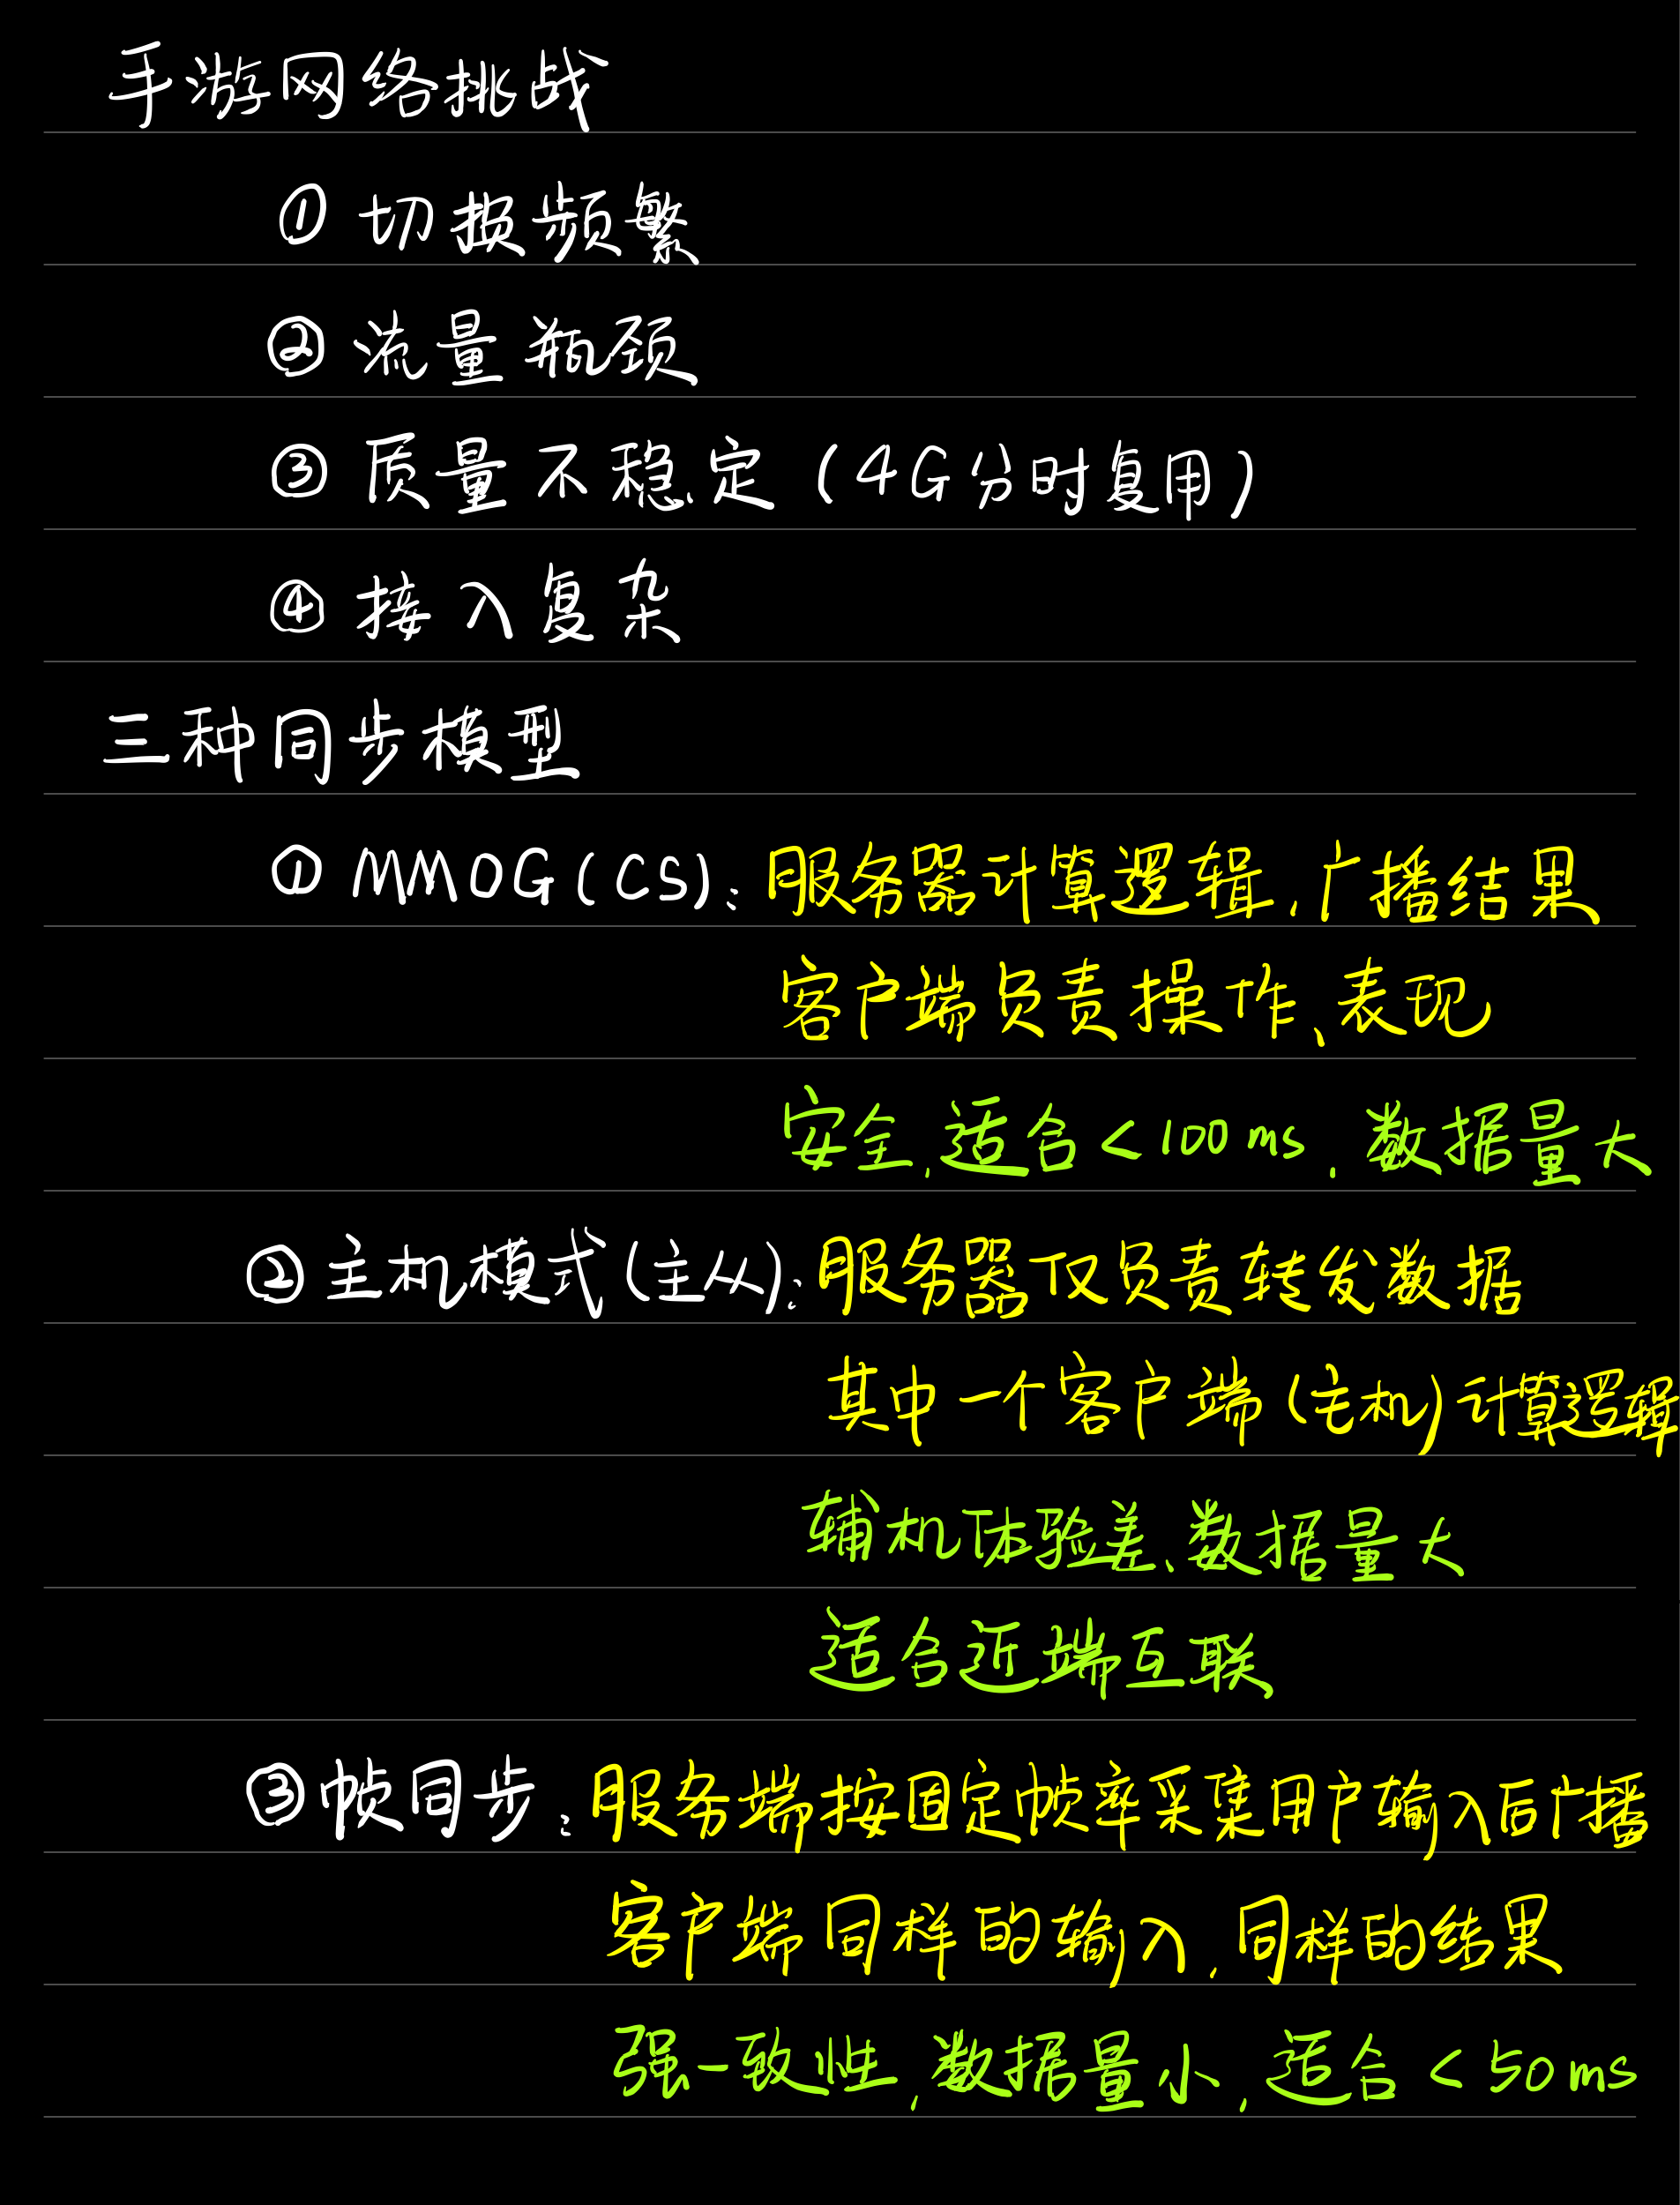 手游网络挑战
① 切换频繁
② 流量瓶颈
③ 质量不稳定（4G分时复用）
④ 接入复杂
三种同步模型
① MMOG(CS)：服务器计算逻辑，广播结果
客户端负责操作、表现
安全，适合<100ms，数据量大
② 主机模式(主从)：服务器仅负责转发数据
其中一个客户端(主机)计算逻辑
辅机体验差、数据量大
适合近端互联
③ 帧同步：服务端按固定帧率采集用户输入后广播
客户端同样的输入，同样的结果
强一致性，数据量小，适合<50ms